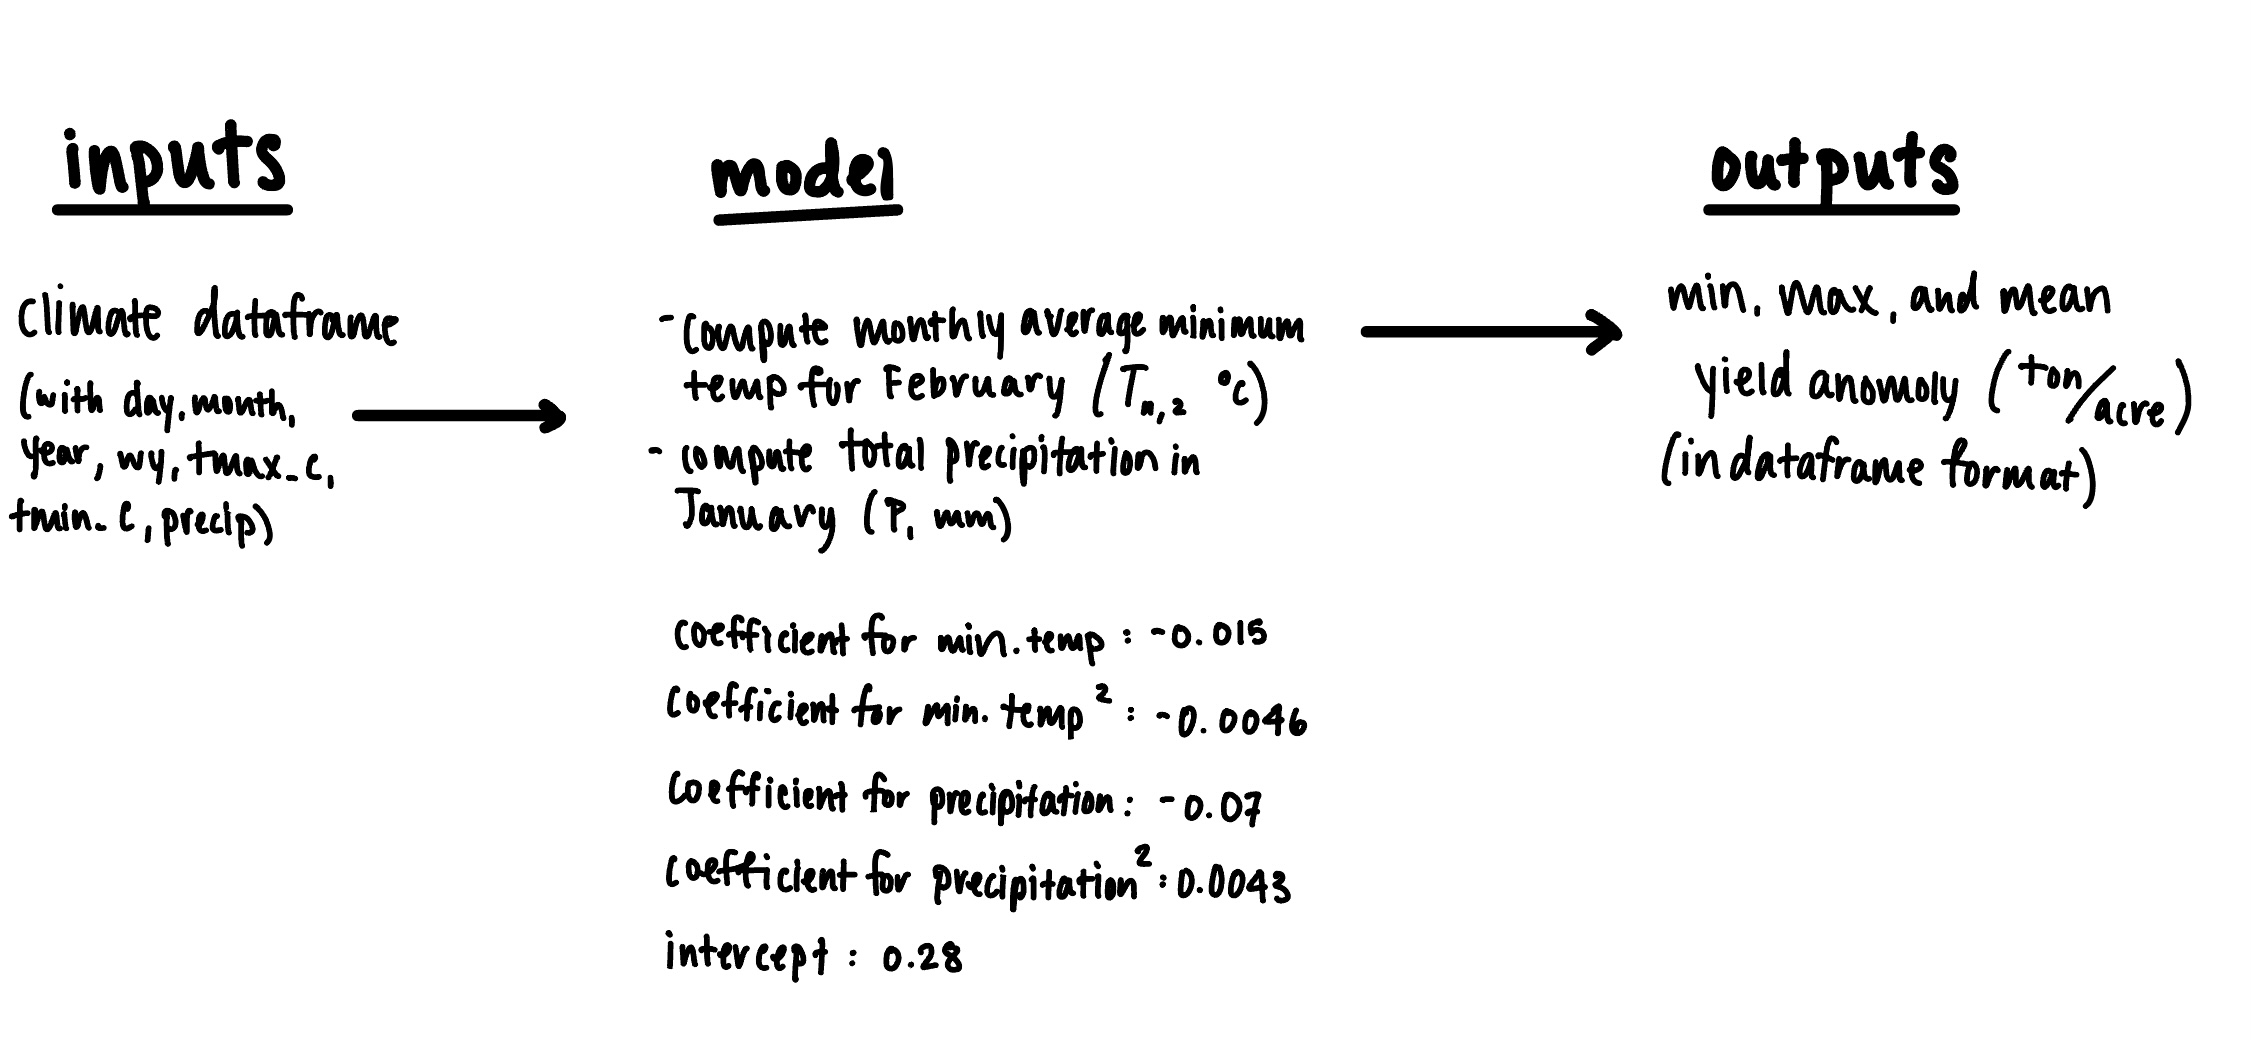 inputs
climate dataframe
(with day, month,
year, wy, tmax_c,
tmin_c, precip)
model
- compute monthly average minimum
temp for February (Tn,2 °C)
- compute total precipitation in
January (P, mm)
coefficient for min. temp : -0.015
coefficient for min. temp² : -0.0046
coefficient for precipitation : -0.07
coefficient for precipitation² : 0.0043
intercept : 0.28
outputs
min, max, and mean
yield anomoly (ton/acre)
(in dataframe format)